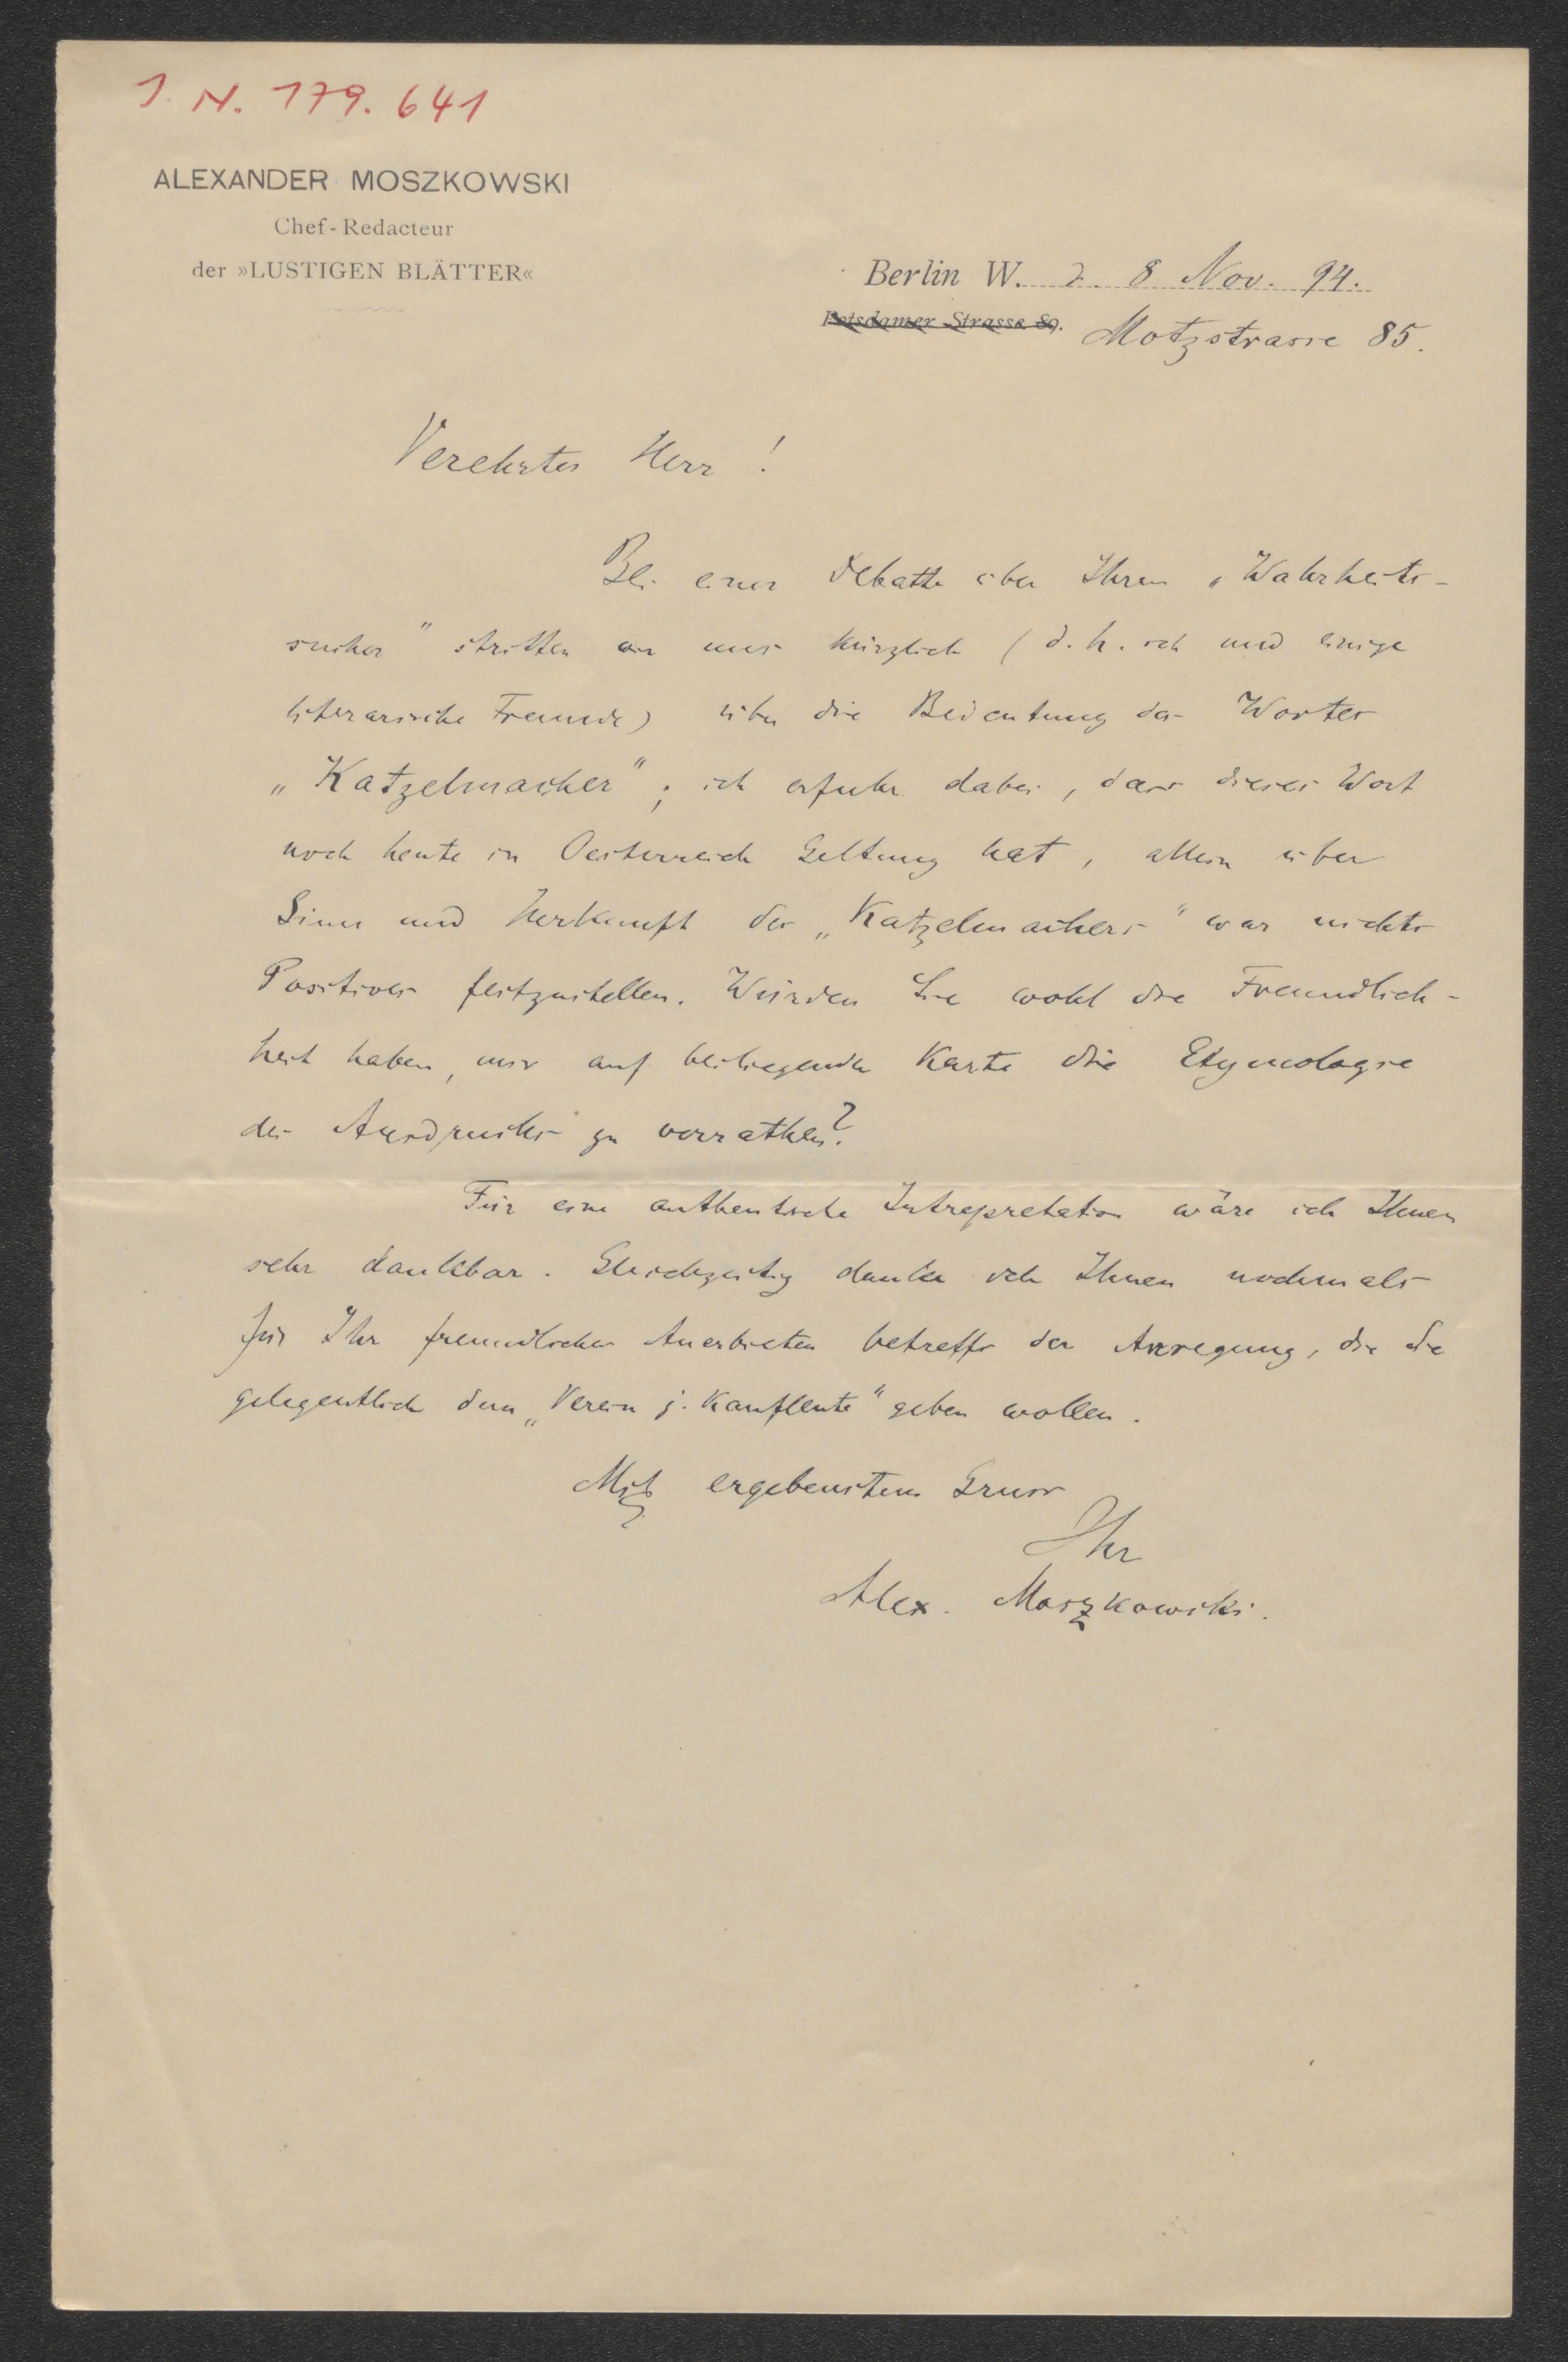 J. N. 179.641
ALEXANDER MOSZKOWSKI
Chef-Redacteur
der »LUSTIGEN BLÄTTER«
Berlin W. 2. 8 Nov. 94.
Potsdamer Strasse 89. Motzstrasse 85.
Verehrter Herr!
Bei einer Debatte über Ihren „Wahrheits-
sucher" stritten wir uns kürzlich (d. h. ich und einige
literarische Freunde) über die Bedeutung des Wortes
„Katzelmacher"; ich erfuhr dabei, dass dieses Wort
noch heute in Oesterreich Geltung hat, allein über
Sinn und Herkunft des „Katzelmachers" war nichts
Positives festzustellen. Würden Sie wohl die Freundlich-
keit haben, mir auf beiliegender Karte die Etymologie
des Ausdrucks zu verrathen?
Für eine authentische Intrepretation wäre ich Ihnen
sehr dankbar. Gleichzeitig danke ich Ihnen nochmals
für Ihr freundliches Anerbieten betreffs der Anregung, die Sie
gelegentlich dem „Verein j. Kaufleute" geben wollen.
Mit ergebenstem Gruss
Ihr
Alex. Moszkowski.